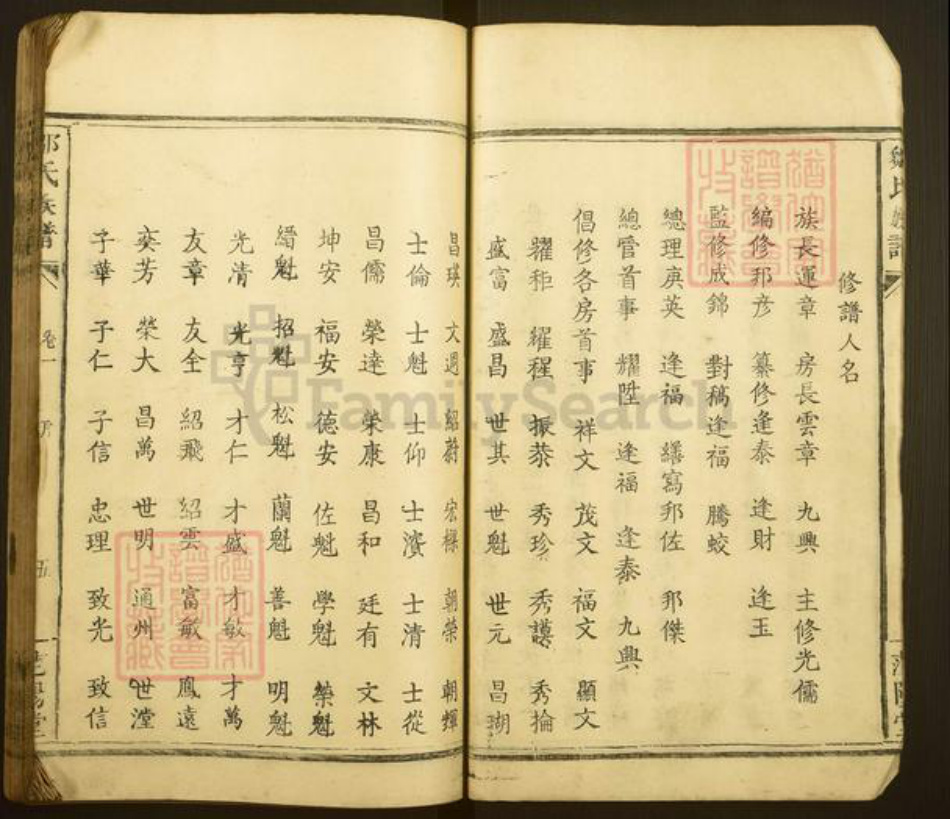 修譜人名
族長運章 房長雲章 九興 主修光儒
編修邦彦 纂修逢泰 逢財 逢玉
監修成錦 對稿逢福 騰蛟
總理庚英 逢福 繕寫邦佐 邦傑
總管首事 耀陞 逢福 逢泰 九興
倡修各房首事 祥文 茂文 福文 顯文
耀秬 耀程 振泰 秀珍 秀謨 秀掄
盛富 盛昌 世其 世魁 世元 昌瑚
昌瑛 文週 紹蔚 宏樑 朝榮 朝輝
士倫 士魁 士仰 士濱 士清 士從
昌儒 榮達 榮康 昌和 廷有 文林
坤安 福安 德安 佐魁 學魁 榮魁
縉魁 招魁 松魁 蘭魁 善魁 明魁
光清 光亨 才仁 才盛 才敏 才萬
友章 友全 紹飛 紹雲 富敏 鳳遠
奕芳 榮大 昌萬 世明 通州 世瀅
子華 子仁 子信 忠理 致光 致信
鄒氏族譜
卷一
FamilySearch